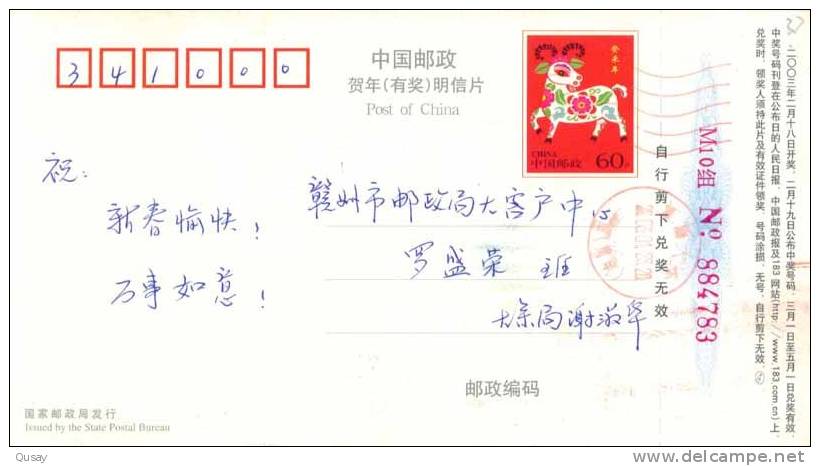 341000
中国邮政
贺年(有奖)明信片
Post of China
癸未年
CHINA
中国邮政 60分
祝:
新春愉快!
万事如意!
赣州市邮政局大客户中心
罗盛荣
大余局谢淑华
邮政编码
国家邮政局发行
Issued by the State Postal Bureau
自行剪下兑奖无效
M10组 No. 884783
二〇〇三年二月十八日开奖,二月十九日公布中奖号码,三月一日至五月一日兑奖有效.
中奖号码刊登在公布日的人民日报、中国邮政报及183网站(http://www.183.com.cn)上.
兑奖时,领奖人须持此片及有效证件领奖,号码涂损、无号、自行剪下无效.
Qusay
delcampe.net